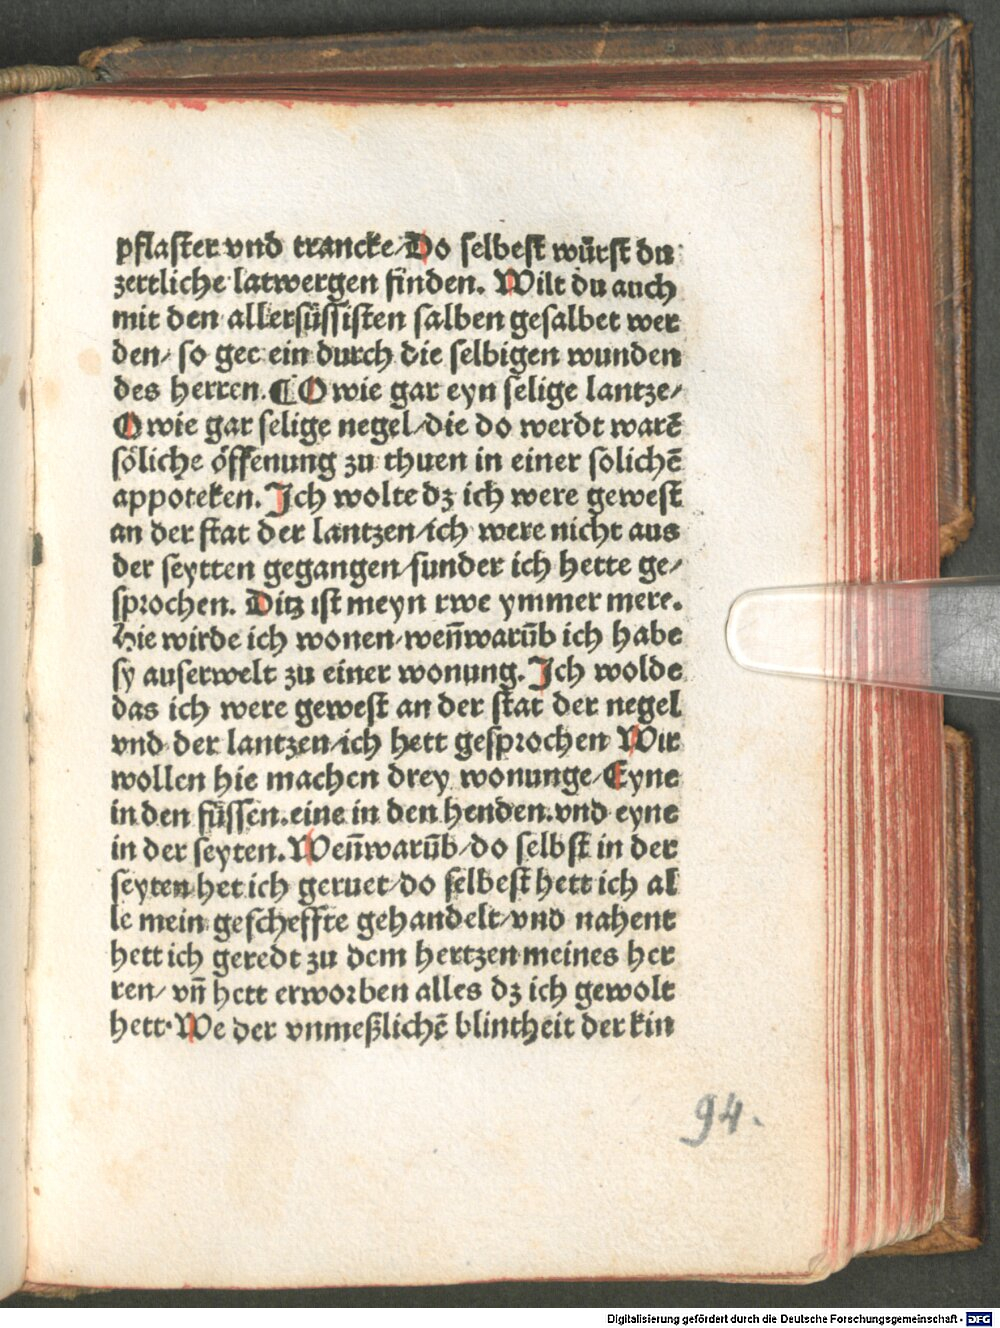 pflaster vnd trancke/Do selbest würst du
zertliche latwergen finden. Wilt du auch
mit den allersüssisten salben gesalbet wer
den/ so gee ein durch die selbigen wunden
des herren. ¶ O wie gar eyn selige lantze/
O wie gar selige negel/die do werdt warē
söliche öffenung zu thuen in einer solichē
appoteken. Ich wolte dz ich were gewest
an der stat der lantzen/ich were nicht aus
der seytten gegangen/sunder ich hette ge/
sprochen. Ditz ist meyn rwe ymmer mere.
Hie wirde ich wonen/weñwarūb ich habe
sy auserwelt zu einer wonung. Ich wolde
das ich were gewest an der stat der negel
vnd der lantzen/ich hett gesprochen Wir
wollen hie machen drey wonunge/Eyne
in den füssen.eine in den henden.vnd eyne
in der seyten. Weñwarūb/do selbst in der
seyten het ich geruet/do selbest hett ich al
le mein gescheffte gehandelt/vnd nahent
hett ich geredt zu dem hertzen meines her
ren/ vñ hett erworben alles dz ich gewolt
hett. We der vnmeßlichē blintheit der kin
94.
Digitalisierung gefördert durch die Deutsche Forschungsgemeinschaft - DFG